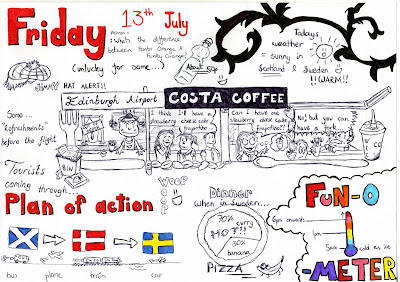 Friday
13th July
Mirron:
: Whats the difference
between Fanta Orange &
Funky Orange?
(unlucky for some...)
About 60p
Todays
weather
= sunny in
Scotland & Sweden
!!WARM!!
HAT ALERT!!
Edinburgh Airport
COSTA COFFEE
Some...
"refreshments"
before the flight
I think I'll have a
strawberry cheese cake
frapettino
Can I have one
strawberry cheese cake
frapettino?!
No! but you can
have a fork
BIN
Tourists
coming through...
WOOP
Plan of action
bus
plane
train
car
Dinner
when in Sweden...
70% curry
HOT!!
30%
banana
PIZZA
FUN-O
-METER
6pm onwards
5am
cold as ice